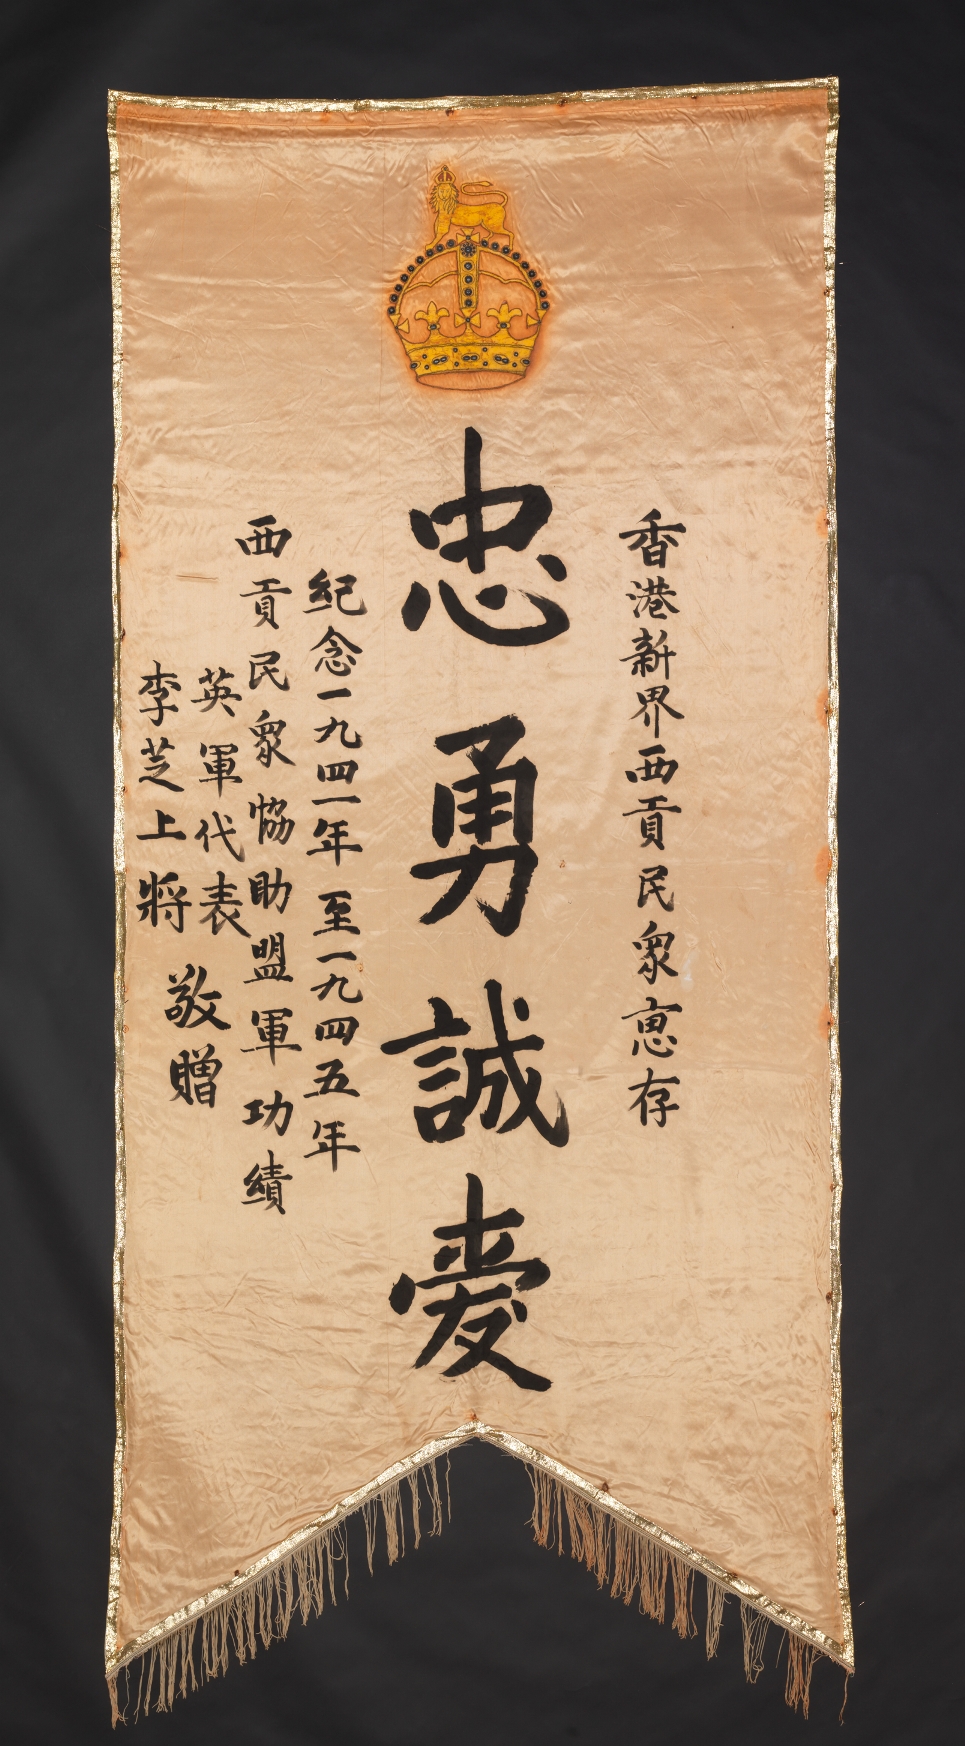 香港新界西貢民衆惠存
忠勇誠愛
紀念一九四一年至一九四五年
西貢民衆恊助盟軍功績
英軍代表
李芝上將
敬贈